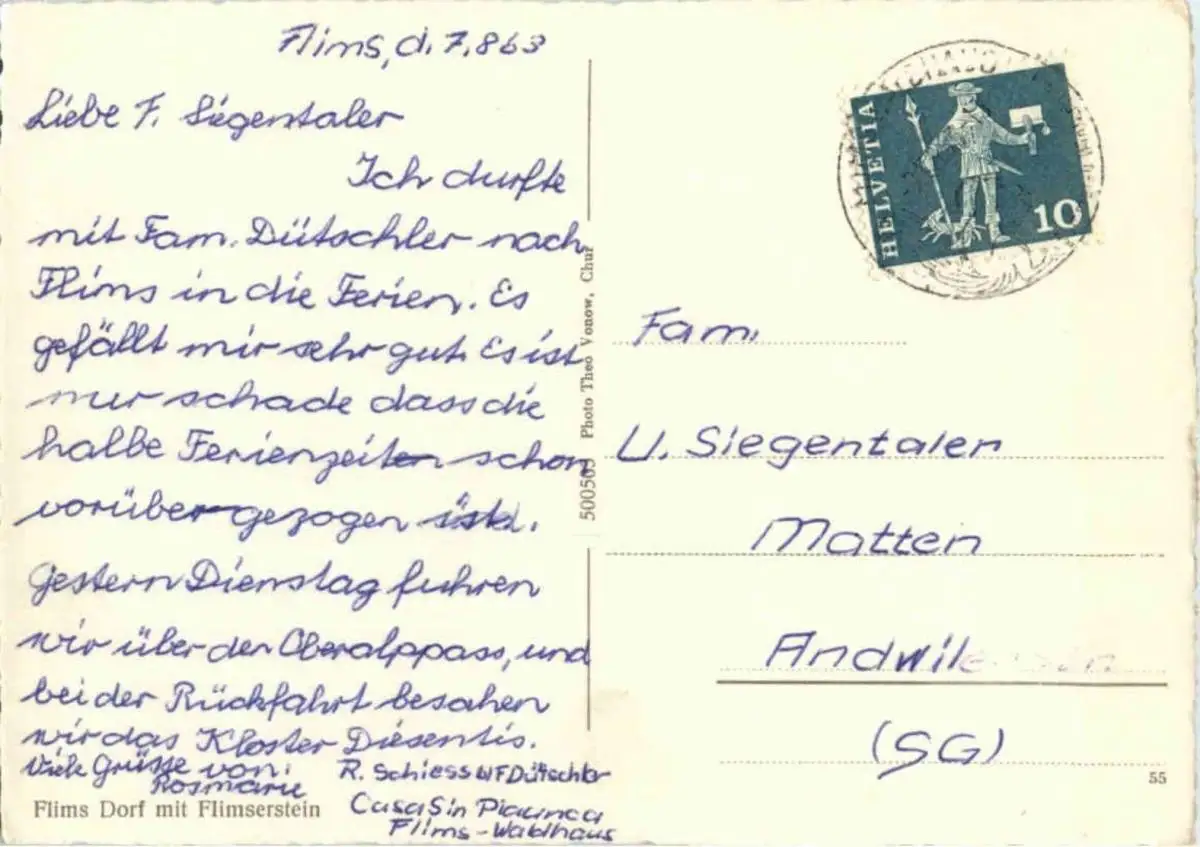 Flims, d. 7.863
Liebe F. Siegentaler
Ich durfte
mit Fam. Dütschler nach
Flims in die Ferien. Es
gefällt mir sehr gut. Es ist
nur schade dass die
halbe Ferienzeit schon
vorüber gezogen ist.
Gestern Dienstag fuhren
wir über den Oberalppass, und
bei der Rückfahrt besahen
wir das Kloster Diesentis.
Viele Grüsse von:
Rosmarie
R. Schiess Dütschler
Casa Sin
Flims-Waldhaus
Flims Dorf mit Flimserstein
500565 Photo Theo Vonow, Chur
HELVETIA
10
Fam.
U. Siegentaler
Matten
Andwil
(SG)
55